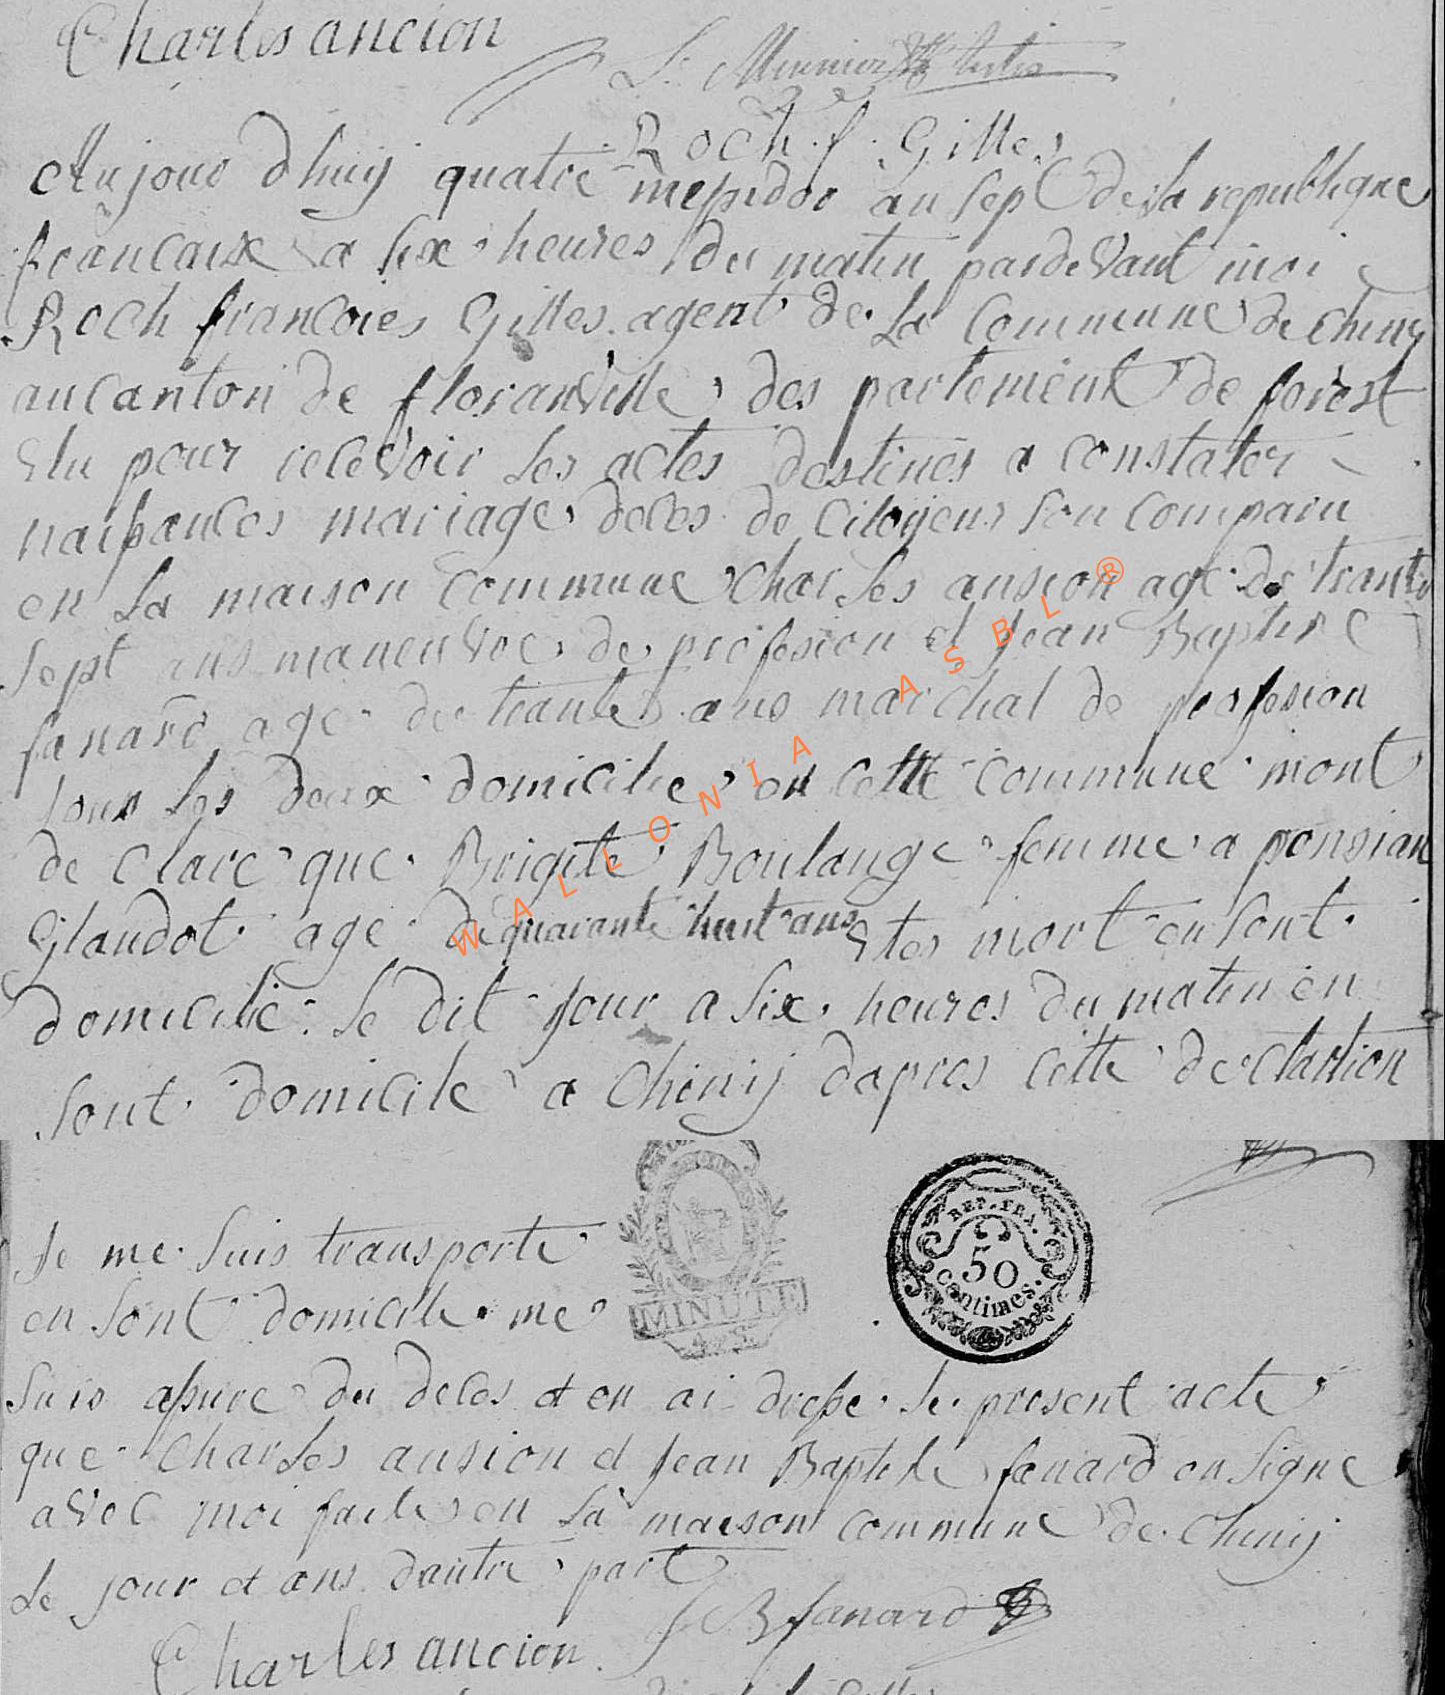 Charles ancion
Roch f. Gilles
Aujour dhuij quatre mesidor an sept de la republique
francaise a six heures du matin pardevant moi
Roch francoies Gilles agent de La Commune de Chinij
au Canton de floranville des partement de forest
Elu pour recevoir les actes destines a constater
naissances mariage deces de Citoyens son comparu
en La maison Commune Charles ansion age de trante
sept ans maneuvre de profesion et Jean Baptiste
fanard age de trante ans marchal de profesion
tous les deux domicilie en cette commune mont
de Clare que Brigite Boulange femme a ponsian
Glaudot age de quarante huit ans Etes mort en sont
domicilie le dit jour a six heures du matin en
sont domicile a Chinij dapres cette declartion
Je me suis transporte
en sont domicile me
suis assure du deces et en ai dresse le present acte
que Charles ansion et Jean Baptiste fanard en signe
avec moi faite en La maison commune de Chinij
Le jour et ans dautre part
J B fanard
Charles ancion
MINUTE
REP. FRA.
50
centimes.
WALLONIA ASBL ®